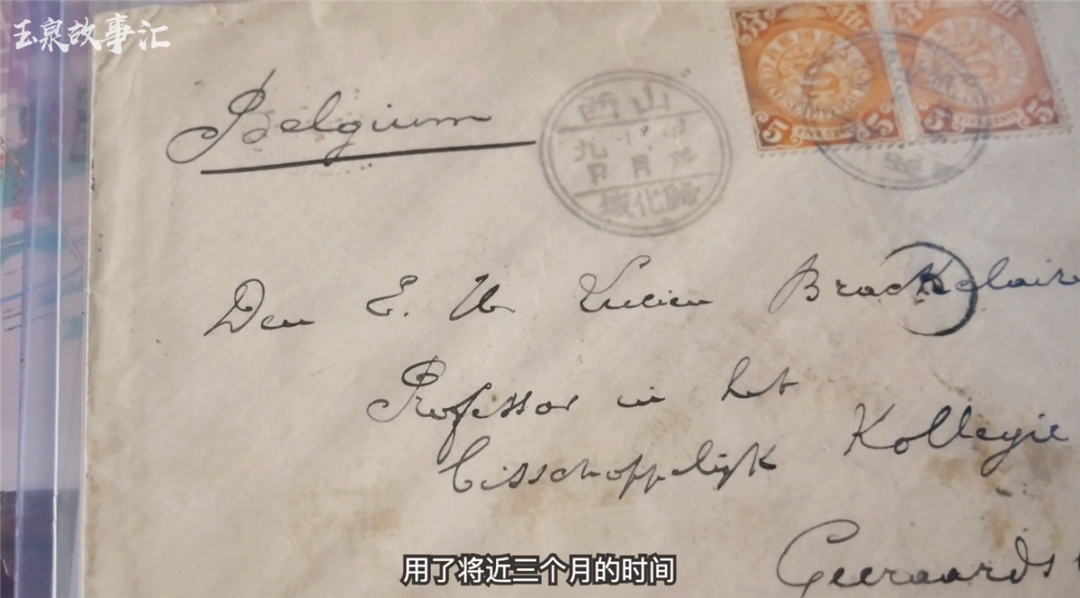 玉泉故事汇
Belgium
山西
九
日 月
歸化城
5 5
FIVE CENTS FIVE CENTS
Den E. H. Lucien Brackelaire
Professor in het
bisschoppelijk Kollegie
Geeraards
用了将近三个月的时间